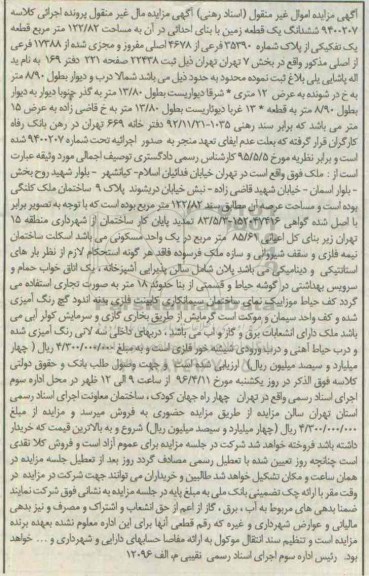 آگهی مزایده اموال غیر منقول (اسناد رهنی) آگهی مزایده مال غیر منقول پرونده اجرائی کلاسه
۹۴۰۰۲۰۷ ششدانگ یک قطعه زمین با بنای احداثی در آن به مساحت ۱۲۲/۸۲ متر مربع قطعه
یک تفکیکی از پلاک شماره ۳۵۳۹۰ فرعی از ۴۶۷۸ اصلی مفروز و مجزی شده از ۱۷۳۸۸ فرعی
از اصلی مذکور واقع در بخش ۷ تهران تهران ذیل ثبت ۲۲۴۳۸ صفحه ۲۲۱ دفتر ۱۶۹ به نام ید
اله پاشایی یلی بلاغ ثبت نموده محدود به حدود ذیل می باشد شمالا درب و دیوار بطول ۸/۹۰ متر
به خ در شونده به عرض ۱۲ متری * شرقا دیواریست بطول ۱۳/۸۰ متر به گذر جنوبا دیوار به دیوار
بطول ۸/۹۰ متر به قطعه * ۱۳ غربا دیواریست بطول ۱۳/۸۰ متر به خ قاضی زاده به عرض ۱۵
متر می باشد که برابر سند رهنی ۱۰۳۵-۹۲/۱۱/۲۱ دفتر خانه ۶۶۹ تهران در رهن بانک رفاه
کارگران قرار گرفته که بعلت عدم ایفای تعهد منجر به صدور اجرائیه تحت شماره ۹۴۰۰۲۰۷ شده
است و برابر نظریه مورخ ۹۵/۵/۵ کارشناس رسمی دادگستری توصیف اجمالی مورد وثیقه عبارت
است از : ملک فوق واقع است در تهران خیابان فدائیان اسلام- کیانشهر - بلوار شهید روح بخش
- بلوار اسمان - خیابان شهید قاضی زاده - نبش خیابان دریشوند پلاک ۹ ساختمان ملک کلنگی
بوده است و مساحت عرصه آن مطابق سند ۱۲۲/۸۲ متر مربع بوده است که با توجه به تصویر برابر
با اصل شده گواهی ۱۵۲۰۴۲۴۱۶-۸۳/۵/۳ تمدید پایان کار ساختمان از شهرداری منطقه ۱۵
تهران زیر بنای کل اعیانی ۸۵/۶۷ متر مربع در یک واحد مسکونی می باشد اسکلت ساختمان
نیمه فلزی و سقف شیروانی و سازه ملک فرسوده فاقد هر گونه استحکام لازم از نظر بار های
استاتیکی و دینامیکی می باشد پلان شامل سالن پذیرایی آشپزخانه ، یک اتاق خواب حمام و
سرویس بهداشتی در گوشه حیاط و قسمتی از بنا حدود ۱۸ متر به صورت تجاری استفاده می
گردد کف حیاط موزاییک نمای ساختمان سیمانکاری کابینت فلزی بدنه اندود گچ رنگ آمیزی
شده و کف واحد سیمان و موکت است گرمایش از طریق بخاری گازی و سرمایش کولر آبی می
باشد ملک دارای انشعابات برق و گاز و آب می باشد ، دربهای داخلی سه لائی رنگ آمیزی شده
و درب حیاط آهنی و درب ورودی شیشه خور فلزی است و به مبلغ ۴/۳۰۰/۰۰۰/۰۰۰ ریال ( چهار
میلیارد و سیصد میلیون ریال) ارزیابی شده است و جهت وصول طلب بانک و حقوق دولتی
کلاسه فوق الذکر در روز یکشنبه مورخ ۹۶/۴/۱۱ از ساعت ۹ الی ۱۲ ظهر در محل اداره سوم
اجرای اسناد رسمی واقع در تهران چهار راه جهان کودک ، ساختمان معاونت اجرای اسناد رسمی
استان تهران سالن مزایده از طریق مزایده حضوری به فروش میرسد و مزایده از مبلغ
۴/۳۰۰/۰۰۰/۰۰۰ ریال (چهار میلیارد و سیصد میلیون ریال) شروع و به بالاترین قیمت که خریدار
داشته باشد فروخته خواهد شد شرکت در جلسه مزایده برای عموم آزاد است و فروش کلا نقدی
است چنانچه روز تعیین شده با تعطیل رسمی مصادف گردد روز بعد از تعطیل جلسه مزایده در
همان ساعت و مکان تشکیل خواهد شد طالبین و خریداران می توانند جهت شرکت در مزایده در
وقت مقرر با ارائه چک تضمینی بانک ملی به مبلغ پایه در جلسه مزایده به نشانی فوق شرکت نمایند
ضمنا بدهی های مربوط به آب ، برق ، گاز از اعم از حق انشعاب و اشتراک و مصرف و نیز بدهی
مالیاتی و عوارض شهرداری و غیره که رقم قطعی آنها برای این اداره معلوم نشده بعهده برنده
مزایده است و تنظیم سند انتقال موکول به ارائه مفاصا حسابهای دارایی و شهرداری و ... خواهد
بود. رئیس اداره سوم اجرای اسناد رسمی نقیبی م. الف ۱۲۰۹۶